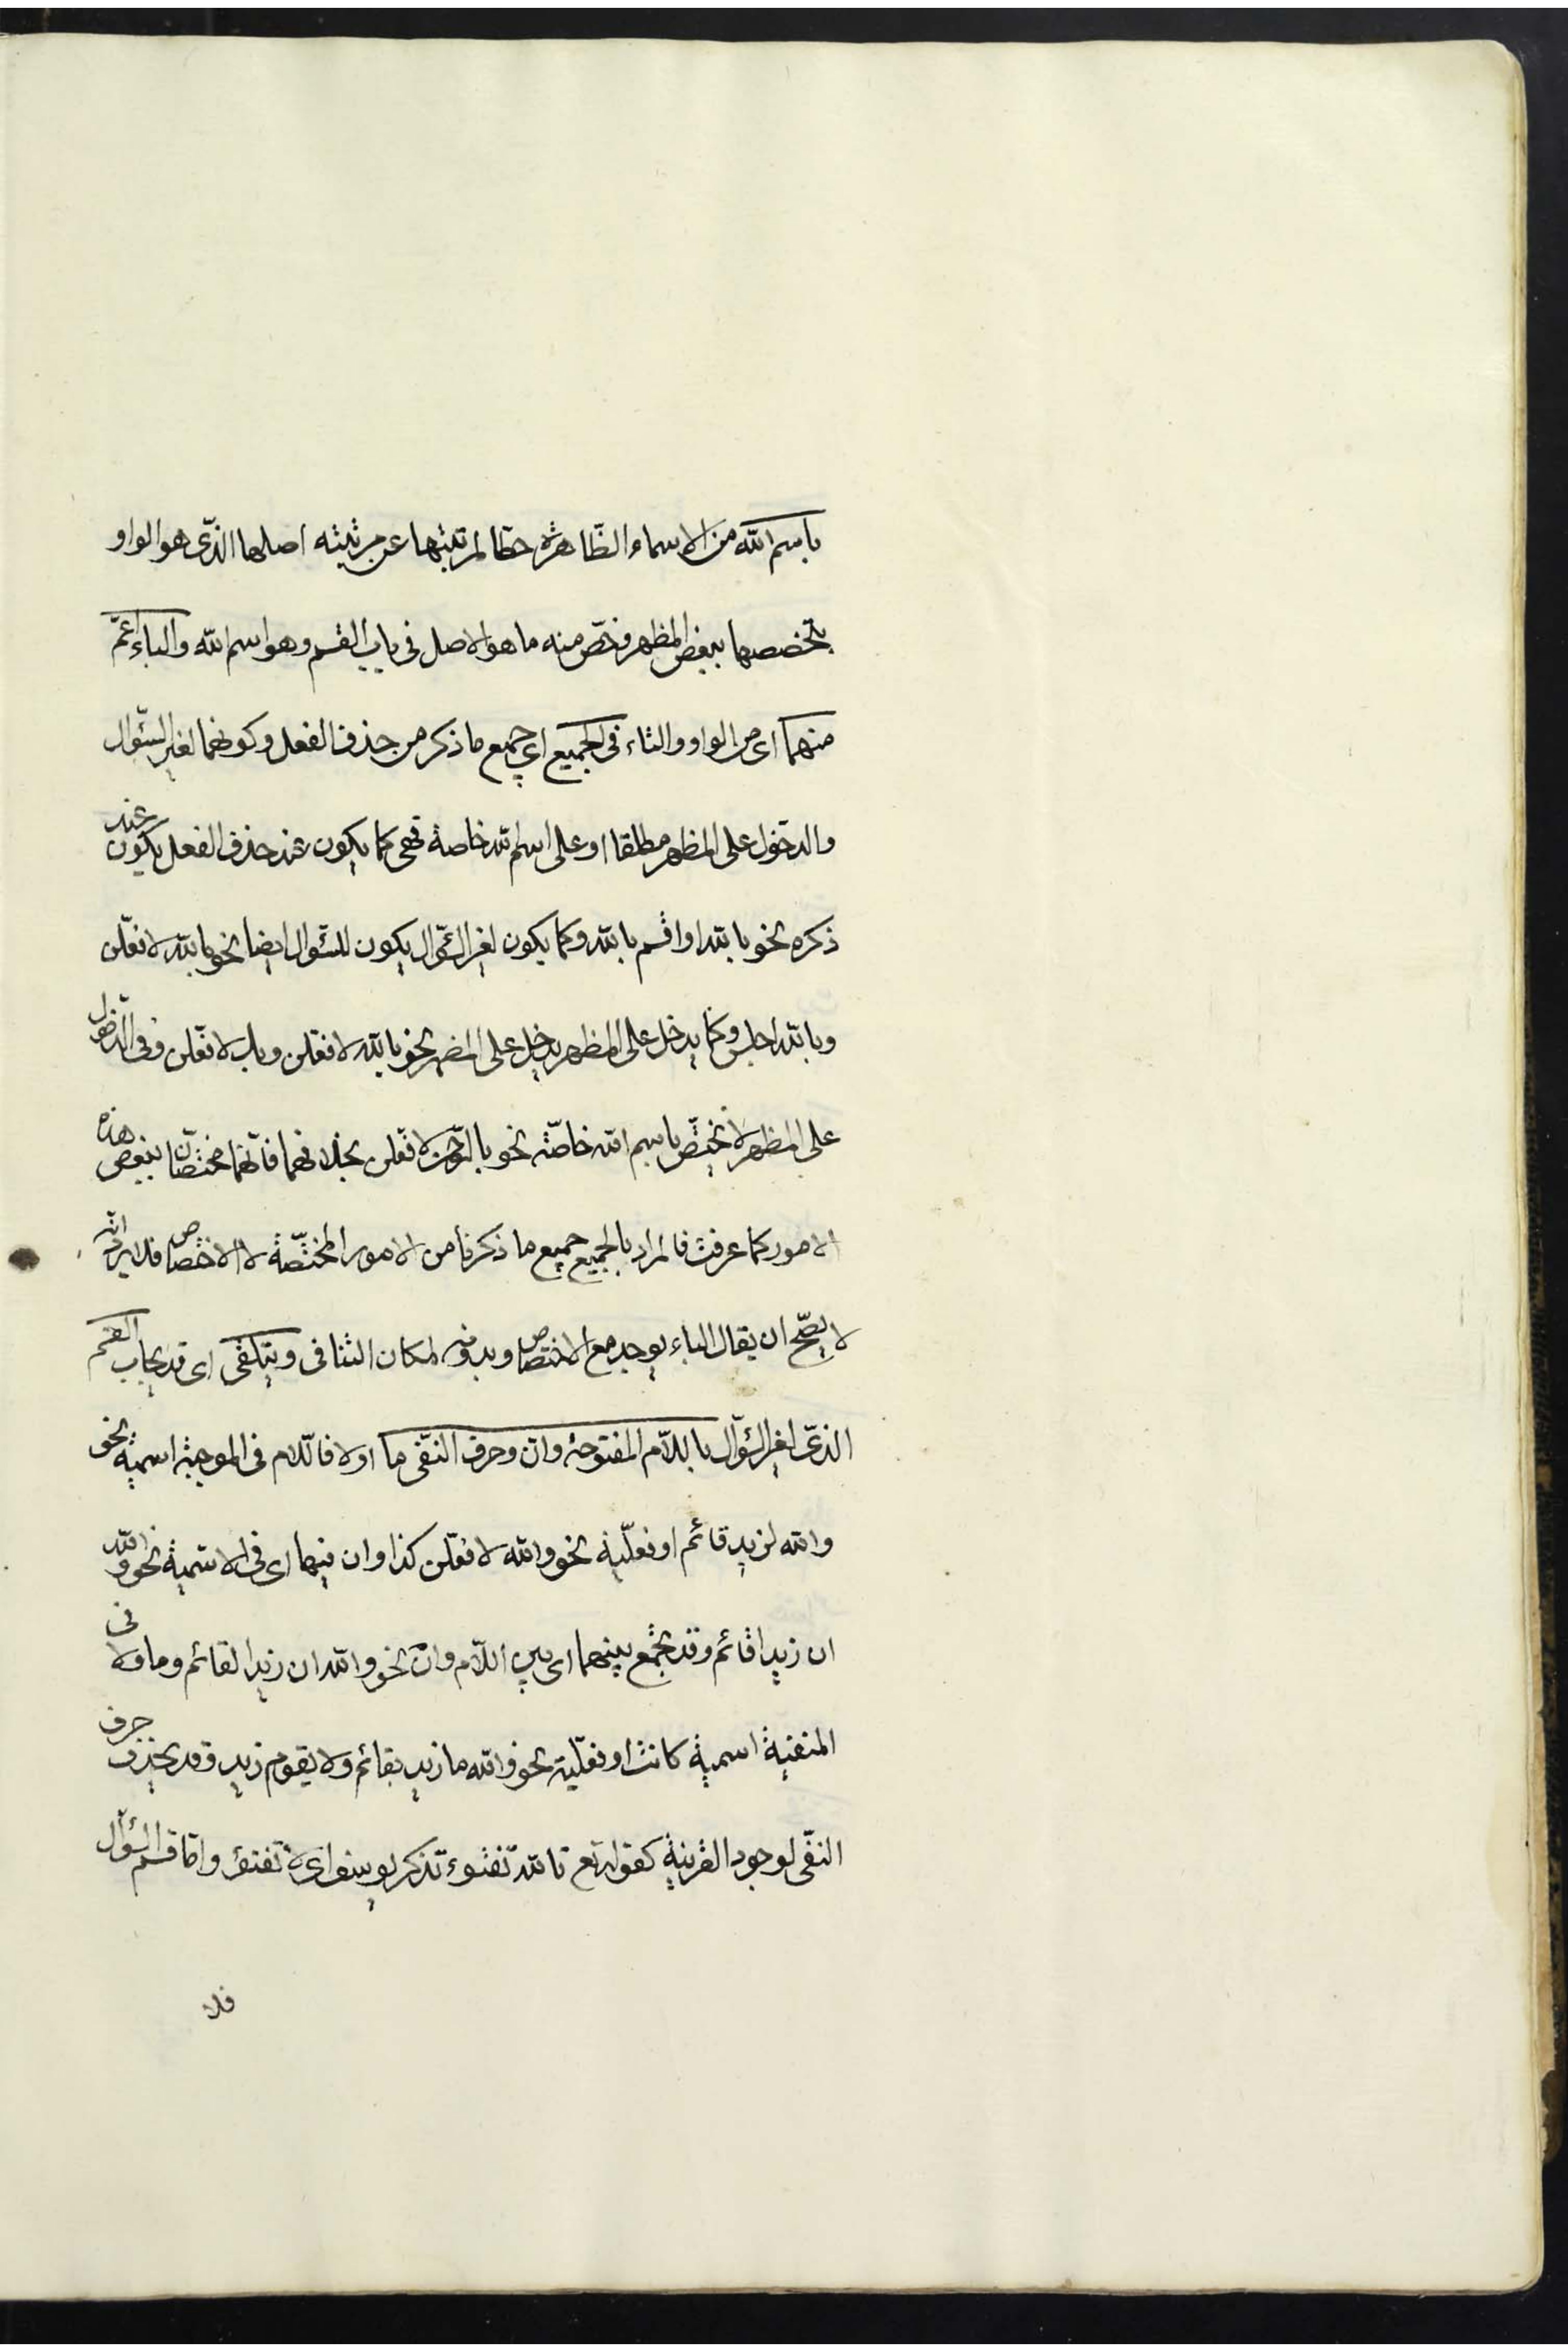 باسم الله من الاسماء الظّاهرة حطّا لمرتبتها عن مرتبته اصلها الذّى هو الواو
بتخصصها ببعض المظهر فخصّ منه ما هو الاصل فى باب القسم وهو اسم الله والباء اعمّ
منهما اى من الواو والتاء فى الجميع اى جميع ما ذكر من حذف الفعل وكونهما لغير السّؤال
والدّخول على المظهر مطلقا او على اسم الله خاصة فهى كما يكون عند حذف الفعل يكون عند
ذكره نحو بالله او اقسم بالله وكما يكون لغير السّؤال يكون للسّؤال ايضا نحو بالله لافعلن
وبالله اجلس وكما يدخل على المظهر يدخل على المضمر نحو بالله لافعلن وبك لافعلن وفى الدّخول
على المظهر لا تختصّ باسم الله خاصّة نحو بالرّحمن لافعلن بخلافهما فانّهما مختصّان ببعض هذه
الامور كما عرفت فالمراد بالجميع جميع ما ذكرنا من الامور المختصّة لا الاختصاص فلا يرد انّه
لا يصّح ان يقال الباء يوجد مع الاختصاص وبدونه لمكان التنافى ويتلقى اى قد يجاب القسم
الذّى لغير السّؤال باللّام المفتوحة وانّ وحرف النّفى ما او لا فاللّام فى الموجبة اسمية نحو
والله لزيد قائم او فعلّية نحو والله لافعلّن كذا وان فيها اى فى الاسّمية نحو والله
ان زيدا قائم وقد يجمع بينهما اى بين اللّام وانّ نحو والله ان زيدا لقائم وما ولا فى
المنفية اسمية كانت او فعلّية نحو والله ما زيد بقائم ولا يقوم زيد وقد يحذف حرف
النّفى لوجود القرينة كقوله تع تالله تفتوء تذكر يوسف اى لا تفتؤ وامّا قسم السّؤال
فلا